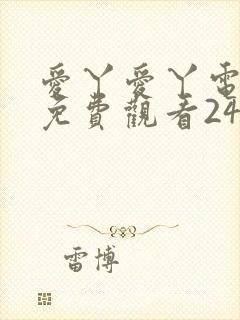 愛丫愛丫電
免費觀看24
雷博